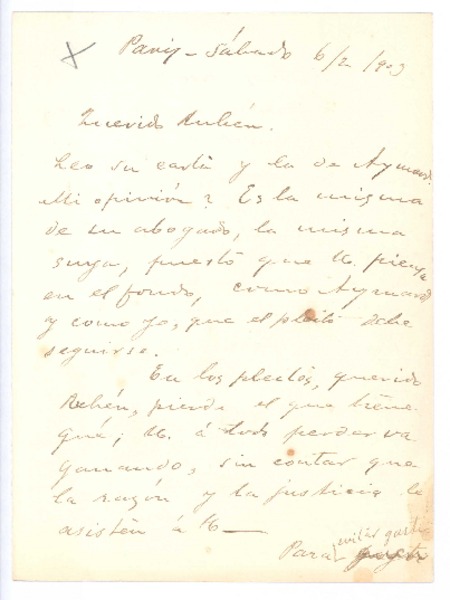 Paris - Sábado 6/2/909
Querido Rubén.
Leo su carta y la de Aymard.
Mi opinión? Es la misma
de su abogado, la misma
suya, puesto que U. piensa
en el fondo, como Aymard
y como yo, que el pleito debe
seguirse.
En los pleitos, querido
Rubén, pierde el que tiene
qué; U. á todo perder va
ganando, sin contar que
la razón y la justicia le
asisten á U—
evitar gastos
Para